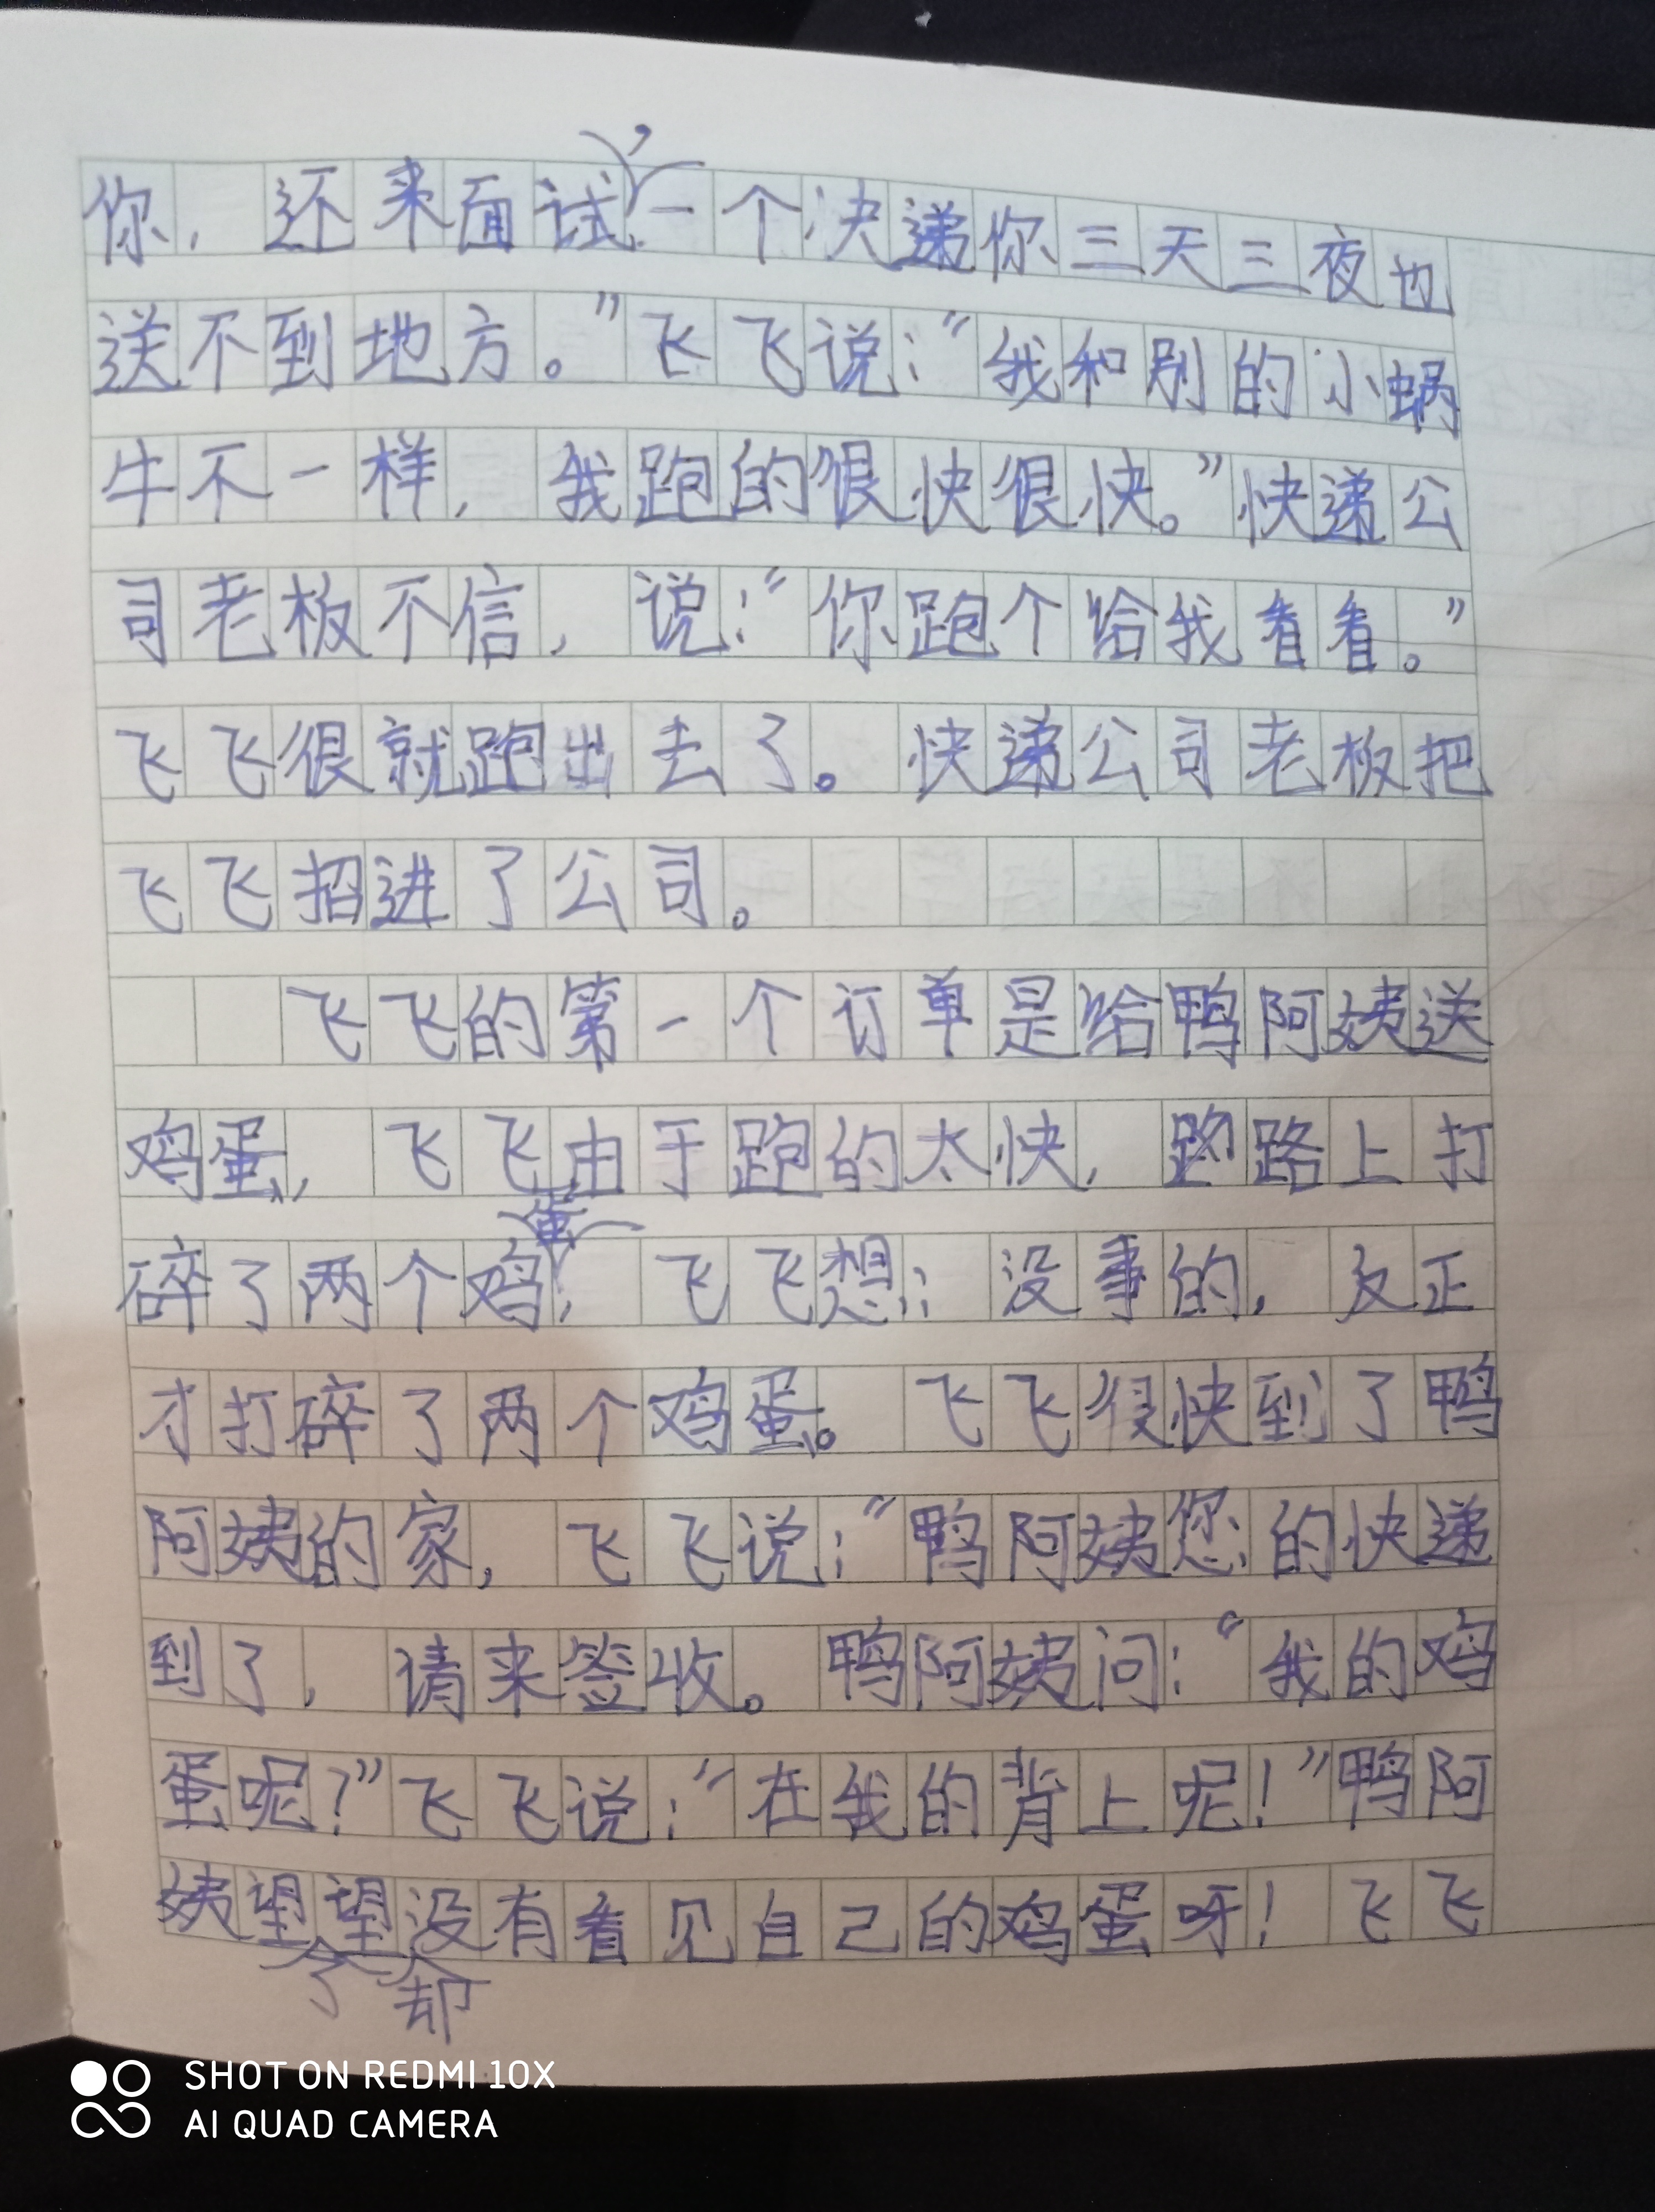 你，还来面试，一个快递你三天三夜也
送不到地方。”飞飞说：“我和别的小蜗
牛不一样，我跑的很快很快。”快递公
司老板不信，说：“你跑个给我看看。”
飞飞很就跑出去了。快递公司老板把
飞飞招进了公司。
飞飞的第一个订单是给鸭阿姨送
鸡蛋，飞飞由于跑的太快，路上打
碎了两个鸡蛋，飞飞想：没事的，反正
才打碎了两个鸡蛋。飞飞很快到了鸭
阿姨的家，飞飞说：“鸭阿姨您的快递
到了，请来签收。鸭阿姨问：“我的鸡
蛋呢？”飞飞说：“在我的背上呢！”鸭阿
姨望了望却没有看见自己的鸡蛋呀！飞飞
SHOT ON REDMI 10X
AI QUAD CAMERA